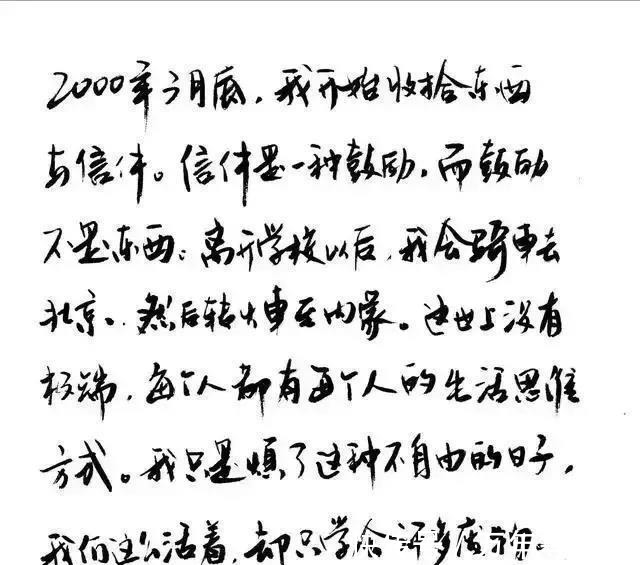 2000年3月底，我开始收拾东西
与信件。信件是一种鼓励，而鼓励
不是东西；离开学校以后，我会骑车去
北京，然后转火车至内蒙。这世上没有
极端，每个人都有每个人的生活思维
方式。我只是烦了这种不自由的日子，
我们这么活着，却只学会许多